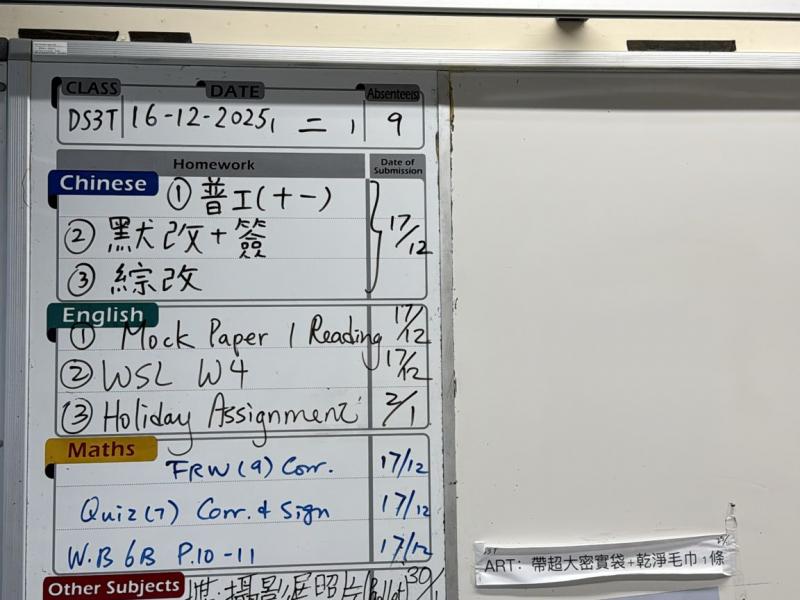 CLASS DATE Absentee(s)
DS3T 16-12-2025, 二 , 9
Homework Date of Submission
Chinese ① 普工(十一)
② 默改+簽 17/12
③ 綜改
English 17/12
① Mock Paper 1 Reading
② WSL W4 17/12
③ Holiday Assignment 2/1
Maths
FRW(9) Corr. 17/12
Quiz(7) Corr. & Sign 17/12
W.B 6B P.10-11 17/12
Other Subjects 攝影展照片 30/1
ART: 帶超大密實袋+乾淨毛巾1條